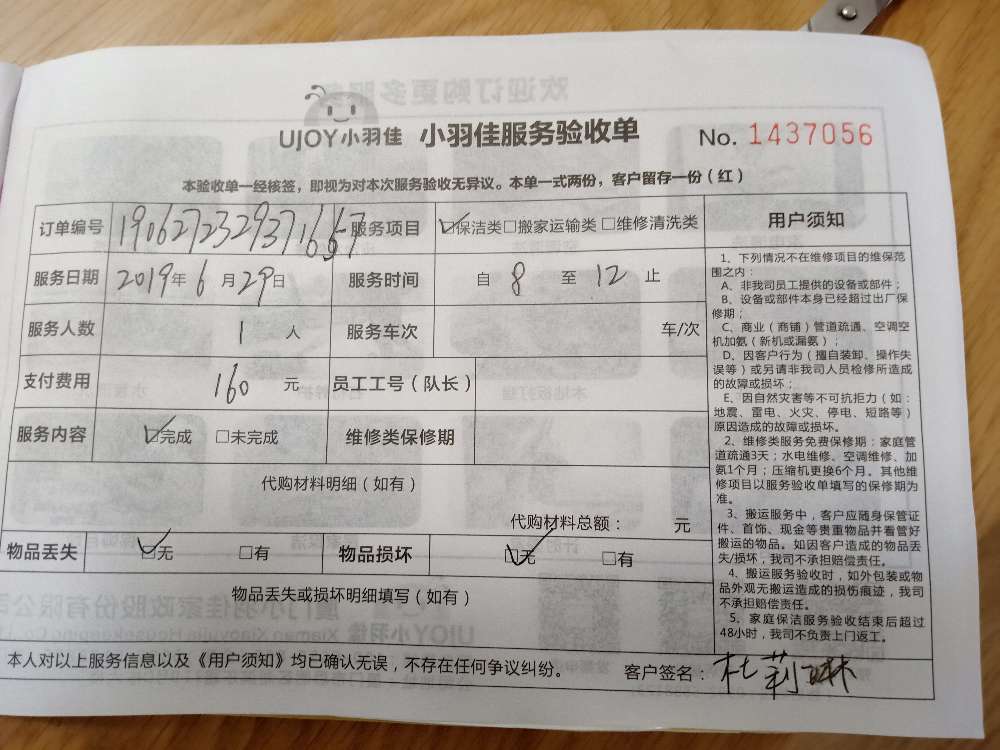 UJOY小羽佳 小羽佳服务验收单 No. 1437056
本验收单一经核签，即视为对本次服务验收无异议。本单一式两份，客户留存一份（红）
订单编号 服务项目 ☑保洁类□搬家运输类□维修清洗类
服务日期 2019年6月29日 服务时间 自 8 至 12 止
服务人数 1 人 服务车次 车/次
支付费用 160 元 员工工号（队长）
服务内容 ☑完成 □未完成 维修类保修期
代购材料明细（如有）
代购材料总额： 元
物品丢失 ☑无 □有 物品损坏 ☑无 □有
物品丢失或损坏明细填写（如有）
本人对以上服务信息以及《用户须知》均已确认无误，不存在任何争议纠纷。 客户签名：杜莉琳
用户须知
1、下列情况不在维修项目的维保范
围之内：
A、非我司员工提供的设备或部件；
B、设备或部件本身已经超过出厂保
修期；
C、商业（商铺）管道疏通、空调空
机加氨（新机或漏氨）；
D、因客户行为（擅自装卸、操作失
误等）或另请非我司人员检修所造成
的故障或损坏；
E、因自然灾害等不可抗拒力（如：
地震、雷电、火灾、停电、短路等）
原因造成的故障或损坏。
2、维修类服务免费保修期：家庭管
道疏通3天；水电维修、空调维修、加
氨1个月；压缩机更换6个月。其他维
修项目以服务验收单填写的保修期为
准。
3、搬运服务中，客户应随身保管证
件、首饰、现金等贵重物品并看管好
搬运的物品。如因客户造成的物品丢
失/损坏，我司不承担赔偿责任。
4、搬运服务验收时，如外包装或物
品外观无搬运造成的损伤痕迹，我司
不承担赔偿责任。
5、家庭保洁服务验收结束后超过
48小时，我司不负责上门返工。